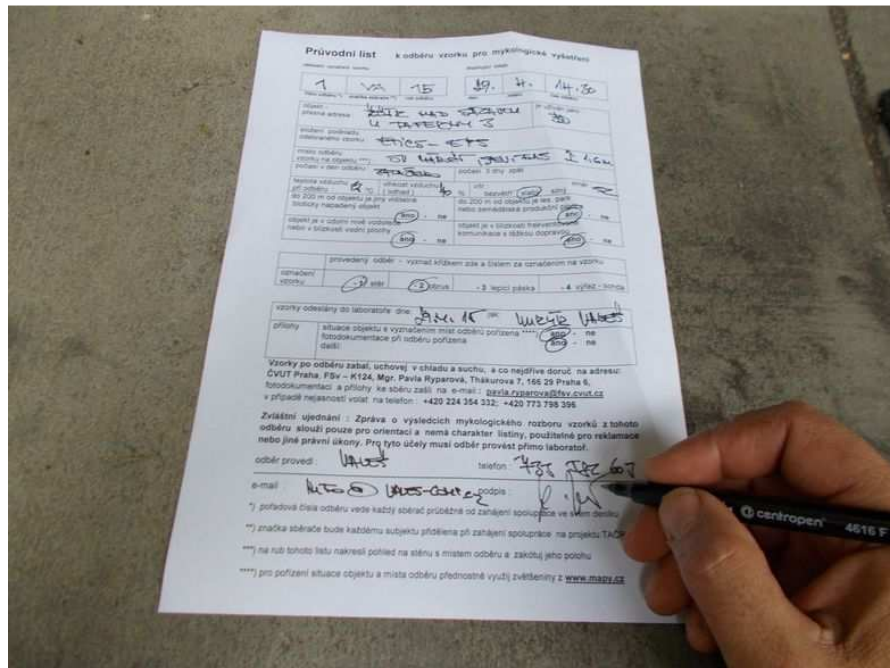 Průvodní list k odběru vzorku pro mykologické vyšetření
1 VA 15 29. 4. 14.30
objekt - přesná adresa ŽĎÁR NAD SÁZAVOU
U TAFERNY 3
složení podkladu odebraného vzorku ETICS - EPS
místo odběru vzorku na objektu ***)
počasí v den odběru počasí 3 dny zpět
teplota vzduchu při odběru °C vlhkost vzduchu (odhad) % vítr bezvětří slabý silný směr
do 200 m od objektu je jiný viditelně bioticky napadený objekt ano - ne
do 200 m od objektu je les, park nebo zemědělská produkční plocha ano - ne
objekt je v údolní nivě vodoteče nebo v blízkosti vodní plochy ano - ne
objekt je v blízkosti frekventované komunikace s těžkou dopravou ano - ne
provedený odběr - vyznač křížkem zde a číslem za označením na vzorku
označení vzorku - 1 stěr - 2 obrus - 3 lepicí páska - 4 výřez - sonda
vzorky odeslány do laboratoře dne: 29.4. 15
přílohy situace objektu s vyznačením míst odběrů pořízena ****) ano - ne
fotodokumentace při odběru pořízena ano - ne
další:
Vzorky po odběru zabal, uchovej v chladu a suchu, a co nejdříve doruč na adresu:
ČVUT Praha, FSv – K124, Mgr. Pavla Ryparová, Thákurova 7, 166 29 Praha 6,
fotodokumentaci a přílohy ke sběru zašli na e-mail : pavla.ryparova@fsv.cvut.cz
v případě nejasností volat na telefon : +420 224 354 332; +420 773 798 396
Zvláštní ujednání : Zpráva o výsledcích mykologického rozboru vzorků z tohoto
odběru slouží pouze pro orientaci a nemá charakter listiny, použitelné pro reklamace
nebo jiné právní úkony. Pro tyto účely musí odběr provést přímo laboratoř.
odběr provedl : VALEŠ telefon :
e-mail : podpis :
*) pořadová čísla odběru vede každý sběrač průběžně od zahájení spolupráce ve svém deníku
**) značka sběrače bude každému subjektu přidělena při zahájení spolupráce na projektu TAČR
***) na rub tohoto listu nakresli pohled na stěnu s místem odběru a zakótuj jeho polohu
****) pro pořízení situace objektu a místa odběru přednostně využij zvětšeniny z www.mapy.cz
centropen 4616 F